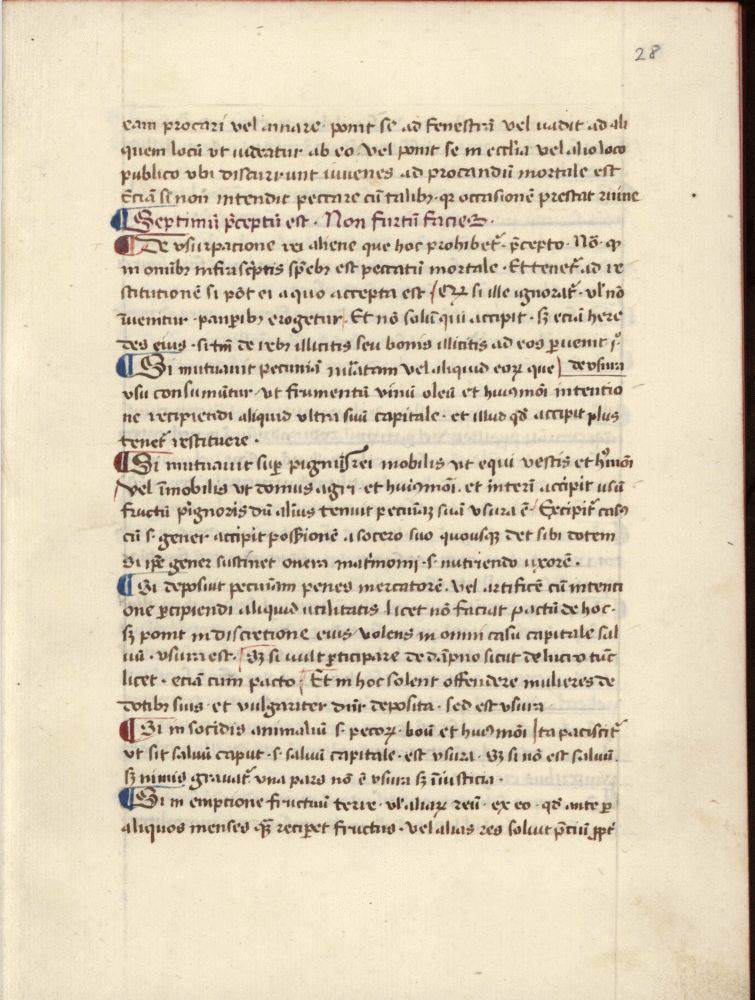 28
eam procari vel amare · ponit se ad fenestrā vel uadit ad ali
quem locū vt uideatur ab eo · Vel ponit se in eccl̄ia vel alio loco
publico vbi discurrunt iuuenes ad procandū mortale est
Eciā si non intendit peccare cū talibꝫ · qꝛ occasionē prestat ruine
¶ Septimū p̄ceptū est · Non furtū facies ·
¶ De vsurpacione rei aliene que hoc prohibet᷑ · p̄cepto · Nō · qꝫ
in omībꝫ infrasc̄ptis sp̄ebꝫ est peccatū mortale · Et tenet᷑ ad re
stitutionē si pōt ei a quo accepta est / Ꝙ si ille ignorat᷑ · vl̄ nō
īuenitur · paupībꝫ erogetur · Et nō solū qui accipit · sꝫ eciā here
des eius · si tm̄ de rebꝫ illicitis seu bonis illicitis ad eos ꝑuenit
¶ Si mutauit pecuniā nūatam vel aliquid eoꝝ que | de vsura
vsu consumūtur · vt frumentū vinū oleū et huiꝰmōi intentio
ne recipiendi aliquid vltra suū capitale · et illud qd̄ accipit plus
tenet᷑ restituere ·
¶ Si mutuauit suꝑ pignus rei mobilis vt equi vestis et hꝰmōi
vel īmobilis vt domus agri · et huiꝰmōi · et interī accipit usū
fructū pignoris dū alius tenuit pecuniaꝫ suā vsura ē · Excipit᷑ casꝰ
cū · s · gener accipit possessionē a socero suo quousqꝫ det sibi dotem
Si ip̄e gener sustinet onera mat̄moni · s · nutriendo uxorē ·
¶ Si deposuit pecuniam penes mercatorē · vel artificē cū intenti
one ꝑcipiendi aliquid utilitatis licet nō faciat pactū de hoc ·
sꝫ ponit in discretione eius volens in omni casu capitale sal
uū · vsura est · Sꝫ si uult ꝑticipare de dāpno sicut de lucro tūc
licet · eciā cum pacto · Et in hoc solent offendere mulieres de
dotibꝫ suis · et vulgariter dn̄r deposita · sed est vsura
¶ Si in socidis animaliū · s · pecoꝝ · boū et huiꝰmōi | ita paciscit᷑
vt sit saluū caput · s · saluū capitale · est vsura · Sꝫ si nō est saluū ·
sꝫ nimis grauat᷑ vna pars nō ē vsura sꝫ īiusticia ·
¶ Si in emptione fructuū terre · vl̄ aliaꝝ reꝝ · ex eo · qd̄ ante ꝑ
aliquos menses qꝫ̄ recipet fructus · vel alias res soluit p̄ciū ꝓpt᷑